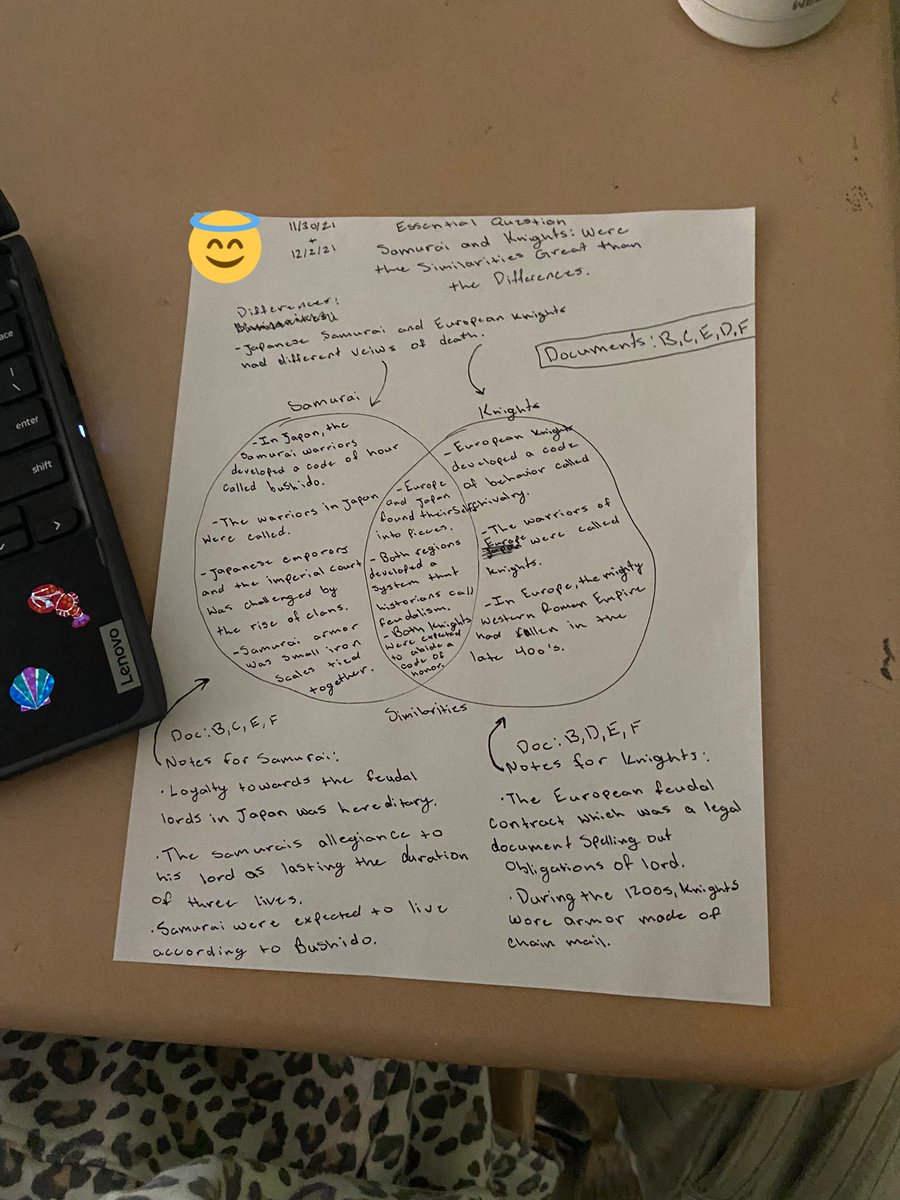 11/30/21
+
12/2/21
Essential Question
Samurai and Knights: Were
the Similarities Great than
the Differences.
Differences:
-Japanese Samurai and European Knights
had different veiws of death.
Documents: B, C, E, D, F
Samurai
-In Japan, the
Samurai warriors
developed a code of hour
called bushido.
-The warriors in Japan
were called.
-Japanese emporors
and the imperial court
was challenged by
the rise of clans.
-Samurai armor
was small iron
Scales tied
together.
-Europe
and Japan
found theirselfs
into pieces.
-Both regions
developed a
system that
historians call
feudalism.
-Both Knights
were expected
to abide a
code of
honor.
Similarities
Knights
-European Knights
developed a code
of behavior called
chivalry.
-The warriors of
Europe were called
Knights.
-In Europe, the mighty
western Roman Empire
had fallen in the
late 400's.
Doc: B, C, E, F
Notes for Samurai:
·Loyalty towards the feudal
lords in Japan was hereditary.
·The samurais allegiance to
his lord as lasting the duration
of three lives.
·Samurai were expected to live
according to Bushido.
Doc: B, D, E, F
Notes for Knights:
·The European feudal
contract which was a legal
document spelling out
obligations of lord.
·During the 1200s, Knights
wore armor made of
chain mail.
enter
shift
Lenovo